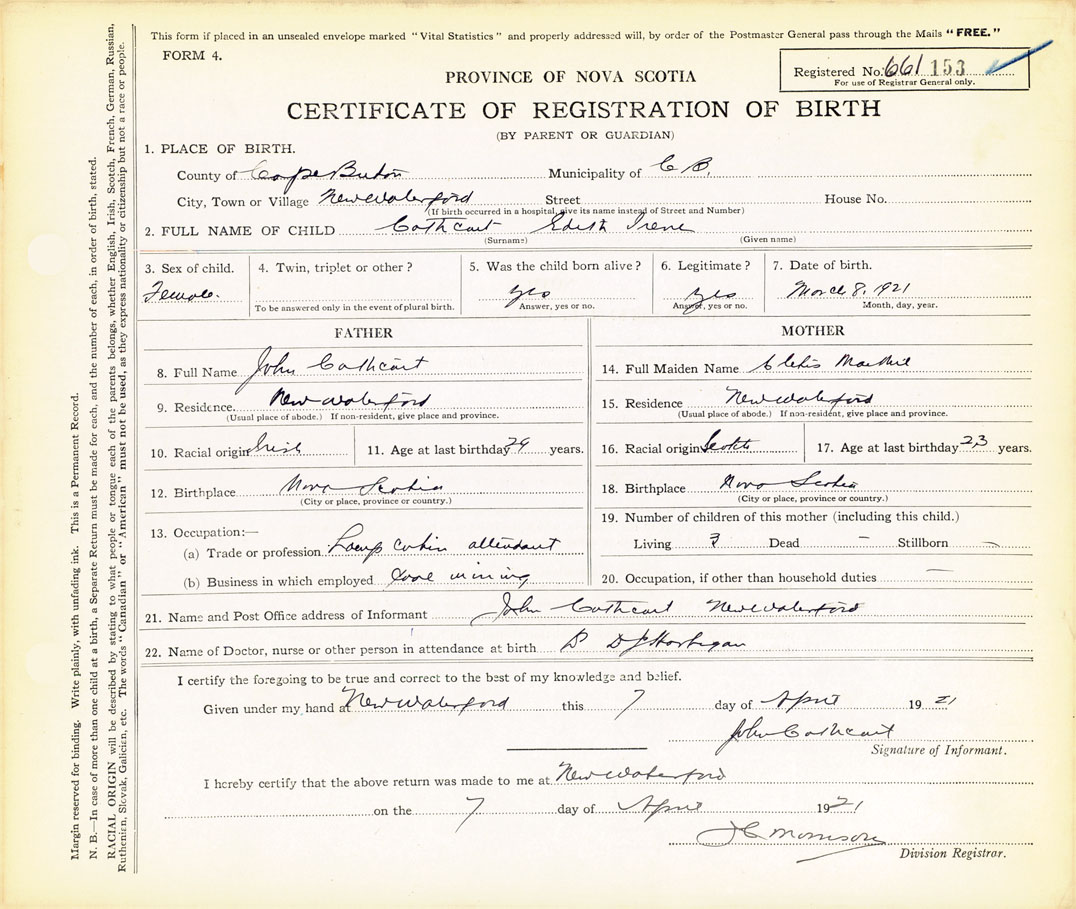 This form if placed in an unsealed envelope marked "Vital Statistics" and properly addressed will, by order of the Postmaster General pass through the Mails "FREE."
FORM 4.
Registered No. 661 153
For use of Registrar General only.
PROVINCE OF NOVA SCOTIA
CERTIFICATE OF REGISTRATION OF BIRTH
(BY PARENT OR GUARDIAN)
1. PLACE OF BIRTH.
County of Cape Breton Municipality of C B.
City, Town or Village New Waterford Street House No.
(If birth occurred in a hospital, give its name instead of Street and Number)
2. FULL NAME OF CHILD Cathcart Edith Irene
(Surname) (Given name)
3. Sex of child. 4. Twin, triplet or other? 5. Was the child born alive? 6. Legitimate? 7. Date of birth.
Female. yes yes March 8, 1921
To be answered only in the event of plural birth. Answer, yes or no. Answer, yes or no. Month, day, year.
FATHER
8. Full Name John Cathcart
9. Residence New Waterford
(Usual place of abode.) If non-resident, give place and province.
10. Racial origin Irish 11. Age at last birthday years.
12. Birthplace Nova Scotia
(City or place, province or country.)
13. Occupation:—
(a) Trade or profession Lamp cabin attendant
(b) Business in which employed mining
MOTHER
14. Full Maiden Name
15. Residence New Waterford
(Usual place of abode.) If non-resident, give place and province.
16. Racial origin Scotch 17. Age at last birthday 23 years.
18. Birthplace Nova Scotia
(City or place, province or country.)
19. Number of children of this mother (including this child.)
Living 3 Dead — Stillborn —
20. Occupation, if other than household duties —
21. Name and Post Office address of Informant John Cathcart New Waterford
22. Name of Doctor, nurse or other person in attendance at birth
I certify the foregoing to be true and correct to the best of my knowledge and belief.
Given under my hand at New Waterford this 7 day of April 1921
John Cathcart
Signature of Informant.
I hereby certify that the above return was made to me at New Waterford
on the 7 day of April 1921
J C Morrison
Division Registrar.
Margin reserved for binding. Write plainly, with unfading ink. This is a Permanent Record.
N. B.—In case of more than one child at a birth, a Separate Return must be made for each, and the number of each, in order of birth, stated.
RACIAL ORIGIN will be described by stating to what people or tongue each of the parents belongs, whether English, Irish, Scotch, French, German, Russian,
Ruthenian, Slovak, Galician, etc. The words "Canadian" or "American" must not be used, as they express nationality or citizenship but not a race or people.